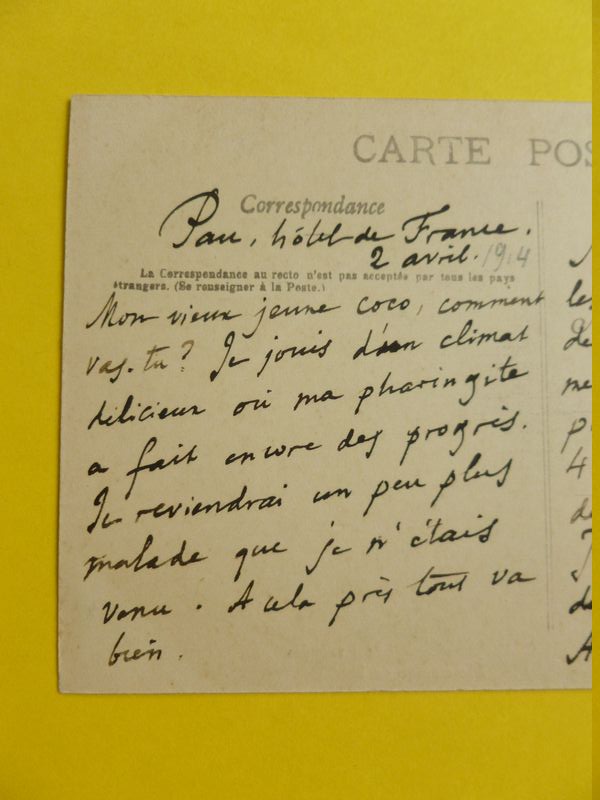 CARTE POS
Correspondance
Pau, hôtel de France.
2 avril. 1914
La Correspondance au recto n'est pas acceptée par tous les pays
étrangers. (Se renseigner à la Poste.)
Mon vieux jeune coco, comment
vas-tu? Je jouis d'un climat
délicieux où ma pharingite
a fait encore des progrès.
Je reviendrai un peu plus
malade que je n'étais
venu. A cela près tout va
bien.